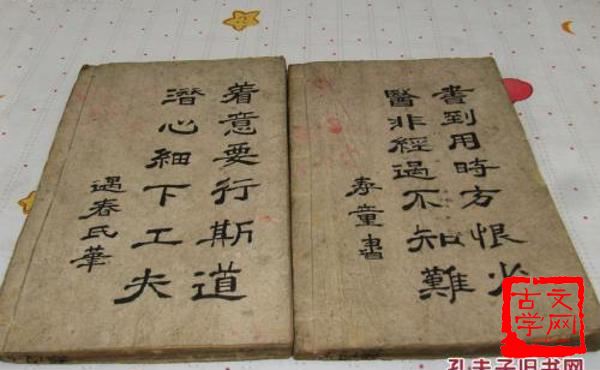 書到用時方恨少
醫非經過不知難
春童書
着意要行斯道
潛心細下工夫
遇春氏華
古文
学网
孔夫子旧书网